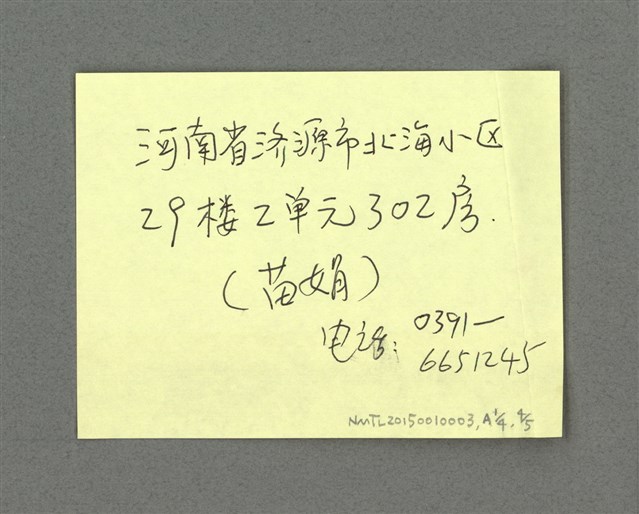 河南省济源市北海小区
29楼2单元302房.
(苗娟)
电话: 0391-
6651245
NMTL20150010003, A 1/4, 4/5